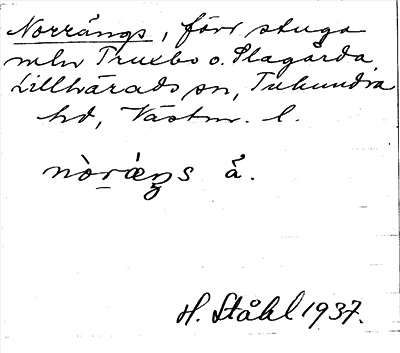 Norrängs, förr stuga
mln Truxbo o. Slagårda,
Lillhärads sn, Tuhundra
hd, Västm. l.
nòrá̈ŋs å.
H. Ståhl 1937.